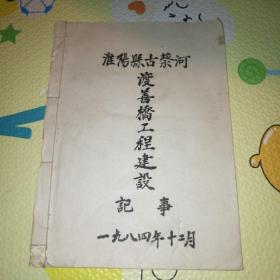 淮陽縣古蔡河
渡善橋工程建設
記事
一九八四年十二月